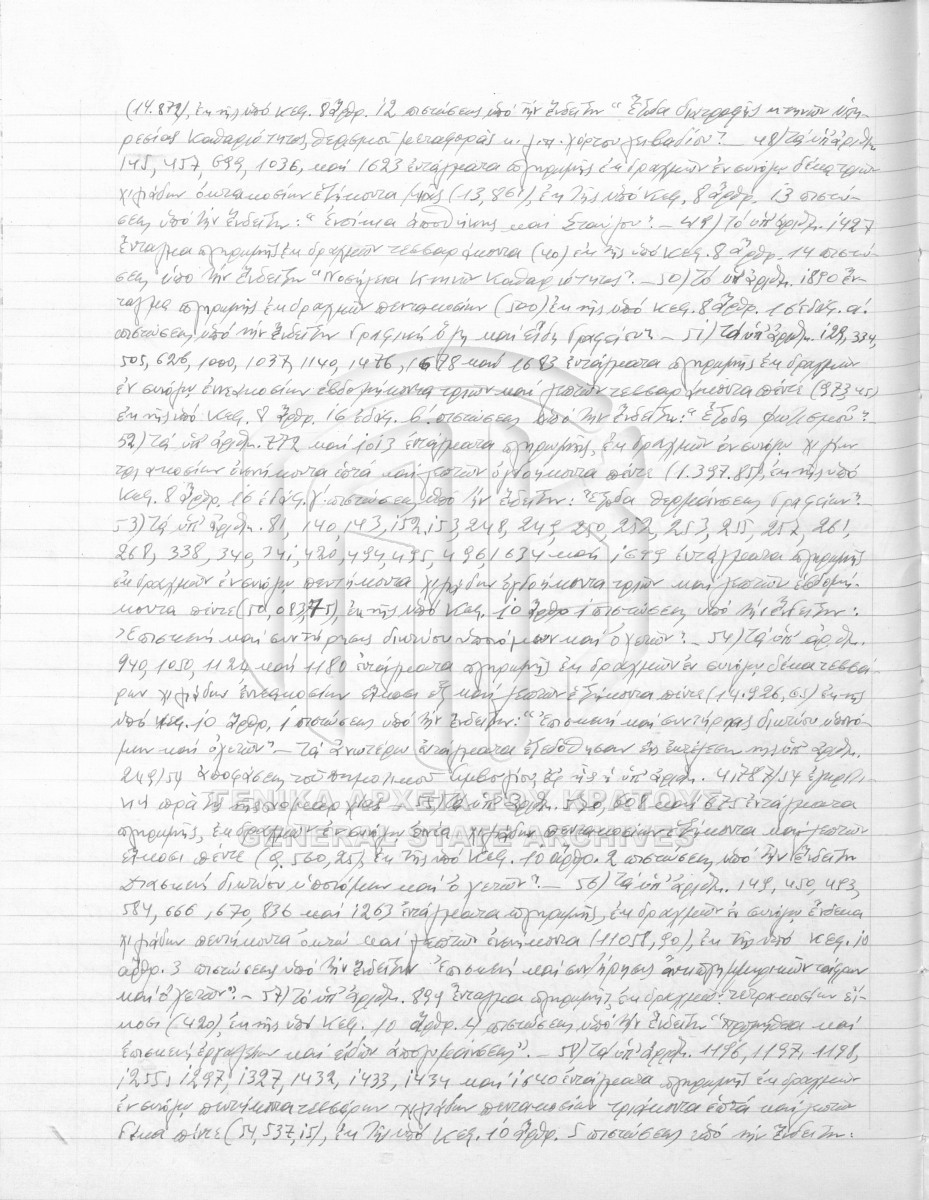 (14.872), ἐκ τῆς ὑπό Κεφ. 8 ἄρθρ. 12 πιστώσεως ὑπό τήν ἔνδειξιν "Ἔξοδα διατροφῆς κτηνῶν ὑπη-
ρεσίας Καθαριότητος, θερισμοῦ μεταφορᾶς κ.λ.π. χόρτου λειβαδίου". 48) Τά ὑπ' ἀριθμ.
145, 457, 699, 1036, καί 1623 ἐντάλματα πληρωμῆς ἐκ δραχμῶν ἐν συνόλῳ δέκα τριῶν
χιλιάδων ὀκτακοσίων ἑξήκοντα μιᾶς (13,861), ἐκ τῆς ὑπό Κεφ. 8 ἄρθρ. 13 πιστώ-
σεως ὑπό τήν ἔνδειξιν: "ἐνοίκια ἀποθήκης καί Σταύλου". - 49) Τό ὑπ' ἀριθμ. 1427
ἔνταλμα πληρωμῆς ἐκ δραχμῶν τεσσαράκοντα (40) ἐκ τῆς ὑπό Κεφ. 8 ἄρθρ. 14 πιστώ-
σεως ὑπό τήν ἔνδειξιν "Νοσήλεια Κτηνῶν Καθαριότητος". - 50) Τό ὑπ' ἀριθμ. 1890 ἔν-
ταλμα πληρωμῆς ἐκ δραχμῶν πεντακοσίων (500) ἐκ τῆς ὑπό Κεφ. 8 ἄρθρ. 16 ἐδάφ. α'.
πιστώσεως ὑπό τήν ἔνδειξιν Γραφική ὕλη καί εἴδη Γραφείου". - 51) Τά ὑπ' ἀριθμ. 129, 334,
505, 626, 1000, 1037, 1140, 1476, 1678 καί 1683 ἐντάλματα πληρωμῆς ἐκ δραχμῶν
ἐν συνόλῳ ἐννεακοσίων ἑβδομήκοντα τριῶν καί λεπτῶν τεσσαράκοντα πέντε (973,45)
ἐκ τῆς ὑπό Κεφ. 8 ἄρθρ. 16 ἐδάφ. β'. πιστώσεως ὑπό τήν ἔνδειξιν: "ἔξοδα φωτισμοῦ".
52) Τά ὑπ' ἀριθμ. 772 καί 1013 ἐντάλματα πληρωμῆς, ἐκ δραχμῶν ἐν συνόλῳ χιλίων
τριακοσίων ἐνενήκοντα ἑπτά καί λεπτῶν ὀγδοήκοντα πέντε (1.397.85), ἐκ τῆς ὑπό
Κεφ. 8 ἄρθρ. 16 ἐδάφ. γ'. πιστώσεως ὑπό τήν ἔνδειξιν: "Ἔξοδα θερμάνσεως Γραφείων".
53) Τά ὑπ' ἀριθμ. 81, 140, 143, 152, 153, 248, 249, 250, 252, 253, 255, 257, 261,
268, 338, 340, 341, 420, 494, 495, 496, 634 καί 1699 ἐντάλματα πληρωμῆς
ἐκ δραχμῶν ἐν συνόλῳ πεντήκοντα χιλιάδων ὀγδοήκοντα τριῶν καί λεπτῶν ἑβδομή-
κοντα πέντε (50,083,75), ἐκ τῆς ὑπό Κεφ. 10 ἄρθρ. 1 πιστώσεως ὑπό τήν ἔνδειξιν:
"Ἐπισκευή καί συντήρησις δικτύου ὑπονόμων καί ὀχετῶν". - 54) Τά ὑπ' ἀριθμ.
940, 1050, 1124 καί 1180 ἐντάλματα πληρωμῆς ἐκ δραχμῶν ἐν συνόλῳ δέκα τεσσά-
ρων χιλιάδων ἐννεακοσίων εἴκοσι ἕξ καί λεπτῶν ἑξήκοντα πέντε (14.926,65) ἐκ τῆς
ὑπό Κεφ. 10 ἄρθρ. 1 πιστώσεως ὑπό τήν ἔνδειξιν: "Ἐπισκευή καί συντήρησις δικτύου ὑπονό-
μων καί ὀχετῶν". - Τά ἀνωτέρω ἐντάλματα ἐξεδόθησαν εἰς ἐκτέλεσιν τῆς ὑπ' ἀριθμ.
249/54 ἀποφάσεως τοῦ Δημοτικοῦ Συμβουλίου, ὑπ' ἀριθμ. 41787/54
τῆς Νομαρχίας - 55) Τά ὑπ' ἀριθμ. 530, 608 καί 675 ἐντάλματα
πληρωμῆς, ἐκ δραχμῶν ἐν συνόλῳ ἐννέα χιλιάδων πεντακοσίων ἑξήκοντα καί λεπτῶν
εἴκοσι πέντε (9.560,25), ἐκ τῆς ὑπό Κεφ. 10 ἄρθρ. 2 πιστώσεως ὑπό τήν ἔνδειξιν
Διασκευή δικτύου ὑπονόμων καί ὀχετῶν". - 56) Τά ὑπ' ἀριθμ. 149, 450, 493,
584, 666, 670, 836 καί 1263 ἐντάλματα πληρωμῆς, ἐκ δραχμῶν ἐν συνόλῳ ἕνδεκα
χιλιάδων πεντήκοντα ὀκτώ καί λεπτῶν ἐνενήκοντα (11058,90), ἐκ τῆς ὑπό Κεφ. 10
ἄρθρ. 3 πιστώσεως ὑπό τήν ἔνδειξιν "Ἐπισκευή καί συντήρησις ἀντιπλημμυρικῶν τάφρων
καί ὀχετῶν". - 57) Τό ὑπ' ἀριθμ. 894 ἔνταλμα πληρωμῆς, ἐκ δραχμῶν τετρακοσίων εἴ-
κοσι (420), ἐκ τῆς ὑπό Κεφ. 10 ἄρθρ. 4 πιστώσεως ὑπό τήν ἔνδειξιν "προμήθεια καί
ἐπισκευή ἐργαλείων καί εἰδῶν ἀπολυμάνσεως". - 58) Τά ὑπ' ἀριθμ. 1196, 1197, 1198,
1255, 1297, 1327, 1432, 1433, 1434 καί 1540 ἐντάλματα πληρωμῆς ἐκ δραχμῶν
ἐν συνόλῳ πεντήκοντα τεσσάρων χιλιάδων πεντακοσίων τριάκοντα ἑπτά καί λεπτῶν
δέκα πέντε (54,537,15), ἐκ τῆς ὑπό Κεφ. 10 ἄρθρ. 5 πιστώσεως ὑπό τήν ἔνδειξιν:
ΓΕΝΙΚΑ ΑΡΧΕΙΑ ΤΟΥ ΚΡΑΤΟΥΣ
GENERAL STATE ARCHIVES